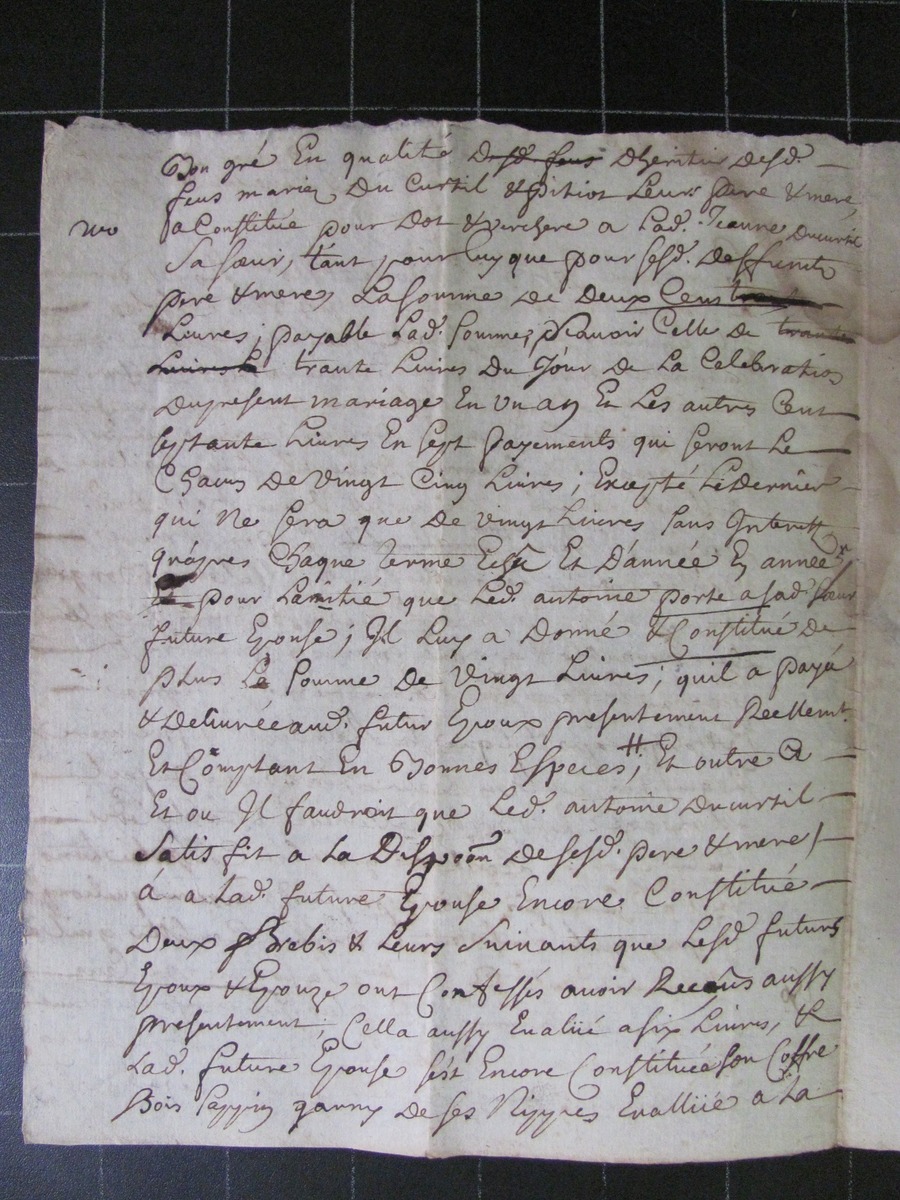 Bon gré En qualité desd. feus Dheritier Desd.
feus mariez Du Curtil & Pitiot Leurs Pere & mere,
a Constitué pour Dot & verchere a Lad. Jeanne Ducurtil
Sa sœur, tant pour luy que pour sesd. Deffunts
pere & mere, La somme de Deux Cens
Livres, payable Lad. somme, Scavoir Celle de trante
Livres trante Livres Du Jour De La Celebration
Du present mariage En un an Et Les autres Cent
septante Livres En sept payements qui seront Le
Chacun De Vingt Cinq Livres ; Excepté Le Dernier
qui Ne sera que De vingt Livres sans Interest
qu'apres Chaque terme Echu Et D'année En année
pour Lamitié que Led. antoine porte a sad. sœur
future Epouse ; Il Luy a Donné & Constitué De
plus La somme De Vingt Livres, quil a payé
& Delivrée aud. futur Epoux presentement Reellemt.
Et Comptant En Bonnes Especes ; Et outre Ce
Et ou Il faudroit que Led. antoine Ducurtil
Satisfit a La Dispoõn De sesd. pere & mere
á a Lad. future Epouse Encore Constitué
Deux Brebis & Leurs Suivants que Lesd. futurs
Epoux & Epouze ont Confessés avoir Receûs aussy
presentement, Cella aussy Evalüé a six Livres, &
Lad. future Epouse s'est Encore Constituée son Coffre
Bois sappin garny de ses Nippes Evallüé a La